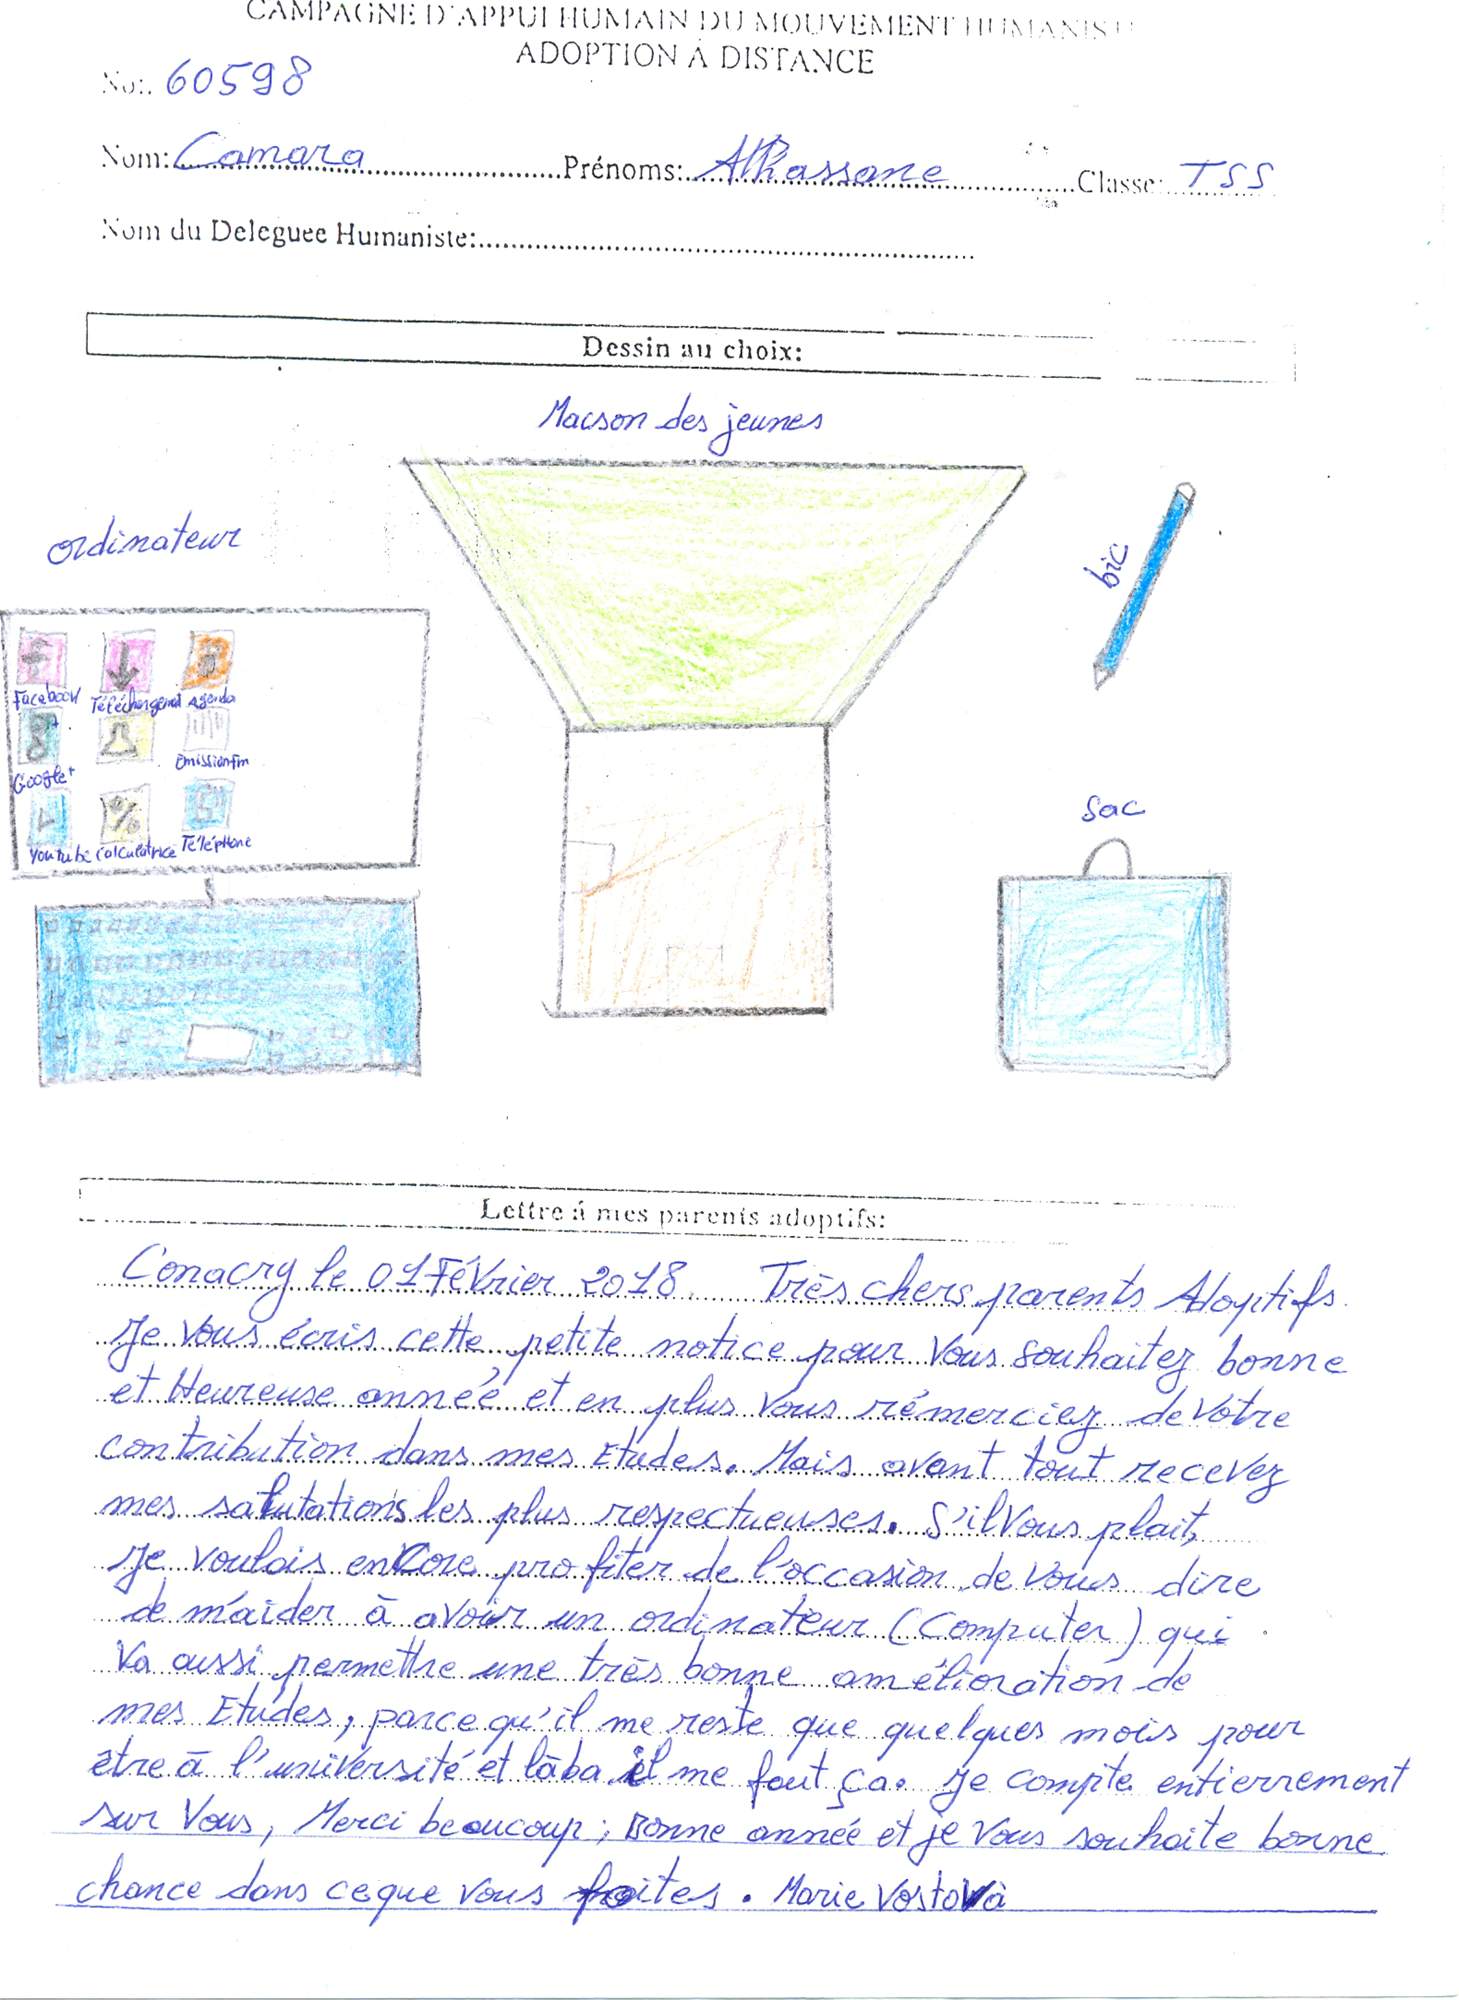 CAMPAGNE D'APPUI HUMAIN DU MOUVEMENT HUMANISTE
ADOPTION Á DISTANCE
No:. 60598
Nom: Camara Prénoms: Alhassane Classe: TSS
Nom du Deleguee Humaniste:
Dessin au choix:
Macson des jeunes
ordinateur
bic
Facebook Téléchargemt Agenda
Google+ Emission fm
Youtube Calculatrice Téléphone
Sac
Lettre á mes parents adoptifs:
Conacry le 01 Février 2018. Très chers parents Adoptifs.
Je vous écris cette petite notice pour vous souhaitez bonne
et Heureuse année et en plus vous rémerciez de votre
contribution dans mes Etudes. Mais avant tout recevez
mes salutations les plus respectueuses. S'il vous plait,
Je voulais encore profiter de l'occasion de vous dire
de m'aider à avoir un ordinateur (Computer) qui
va aussi permettre une très bonne amélioration de
mes Etudes, parce qu'il me reste que quelques mois pour
être à l'université et làba il me faut ça. Je compte entierrement
sur Vous, Merci beaucoup; Bonne année et je vous souhaite bonne
chance dans ceque vous faites. Marie Vostovà